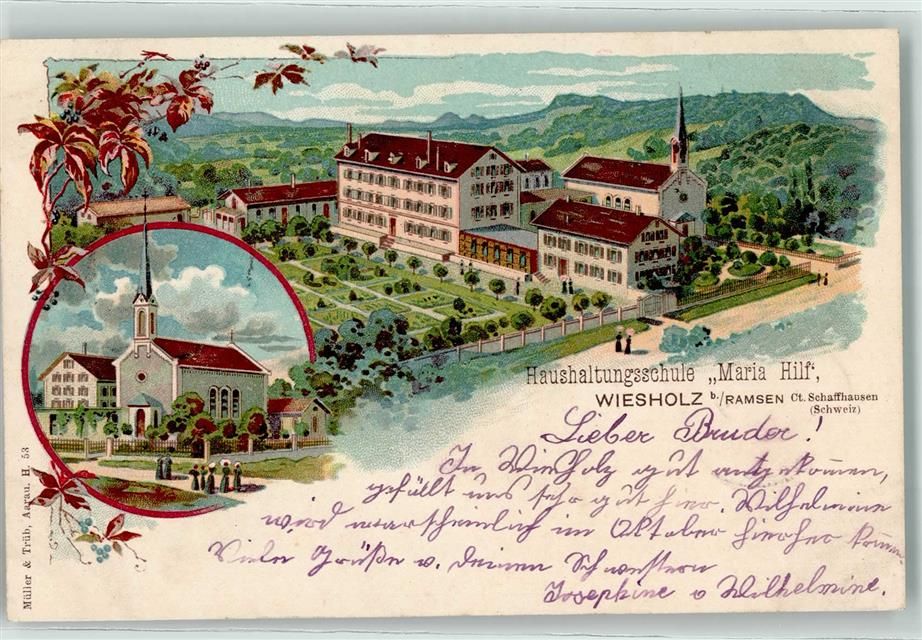 Haushaltungsschule „Maria Hilf“,
WIESHOLZ b./RAMSEN Ct. Schaffhausen
(Schweiz)
Lieber Bruder!
In Wiesholz gut angekommen,
gefällt uns sehr gut hier. Wilhelmine
wird warscheinlich im Oktober hierher kommen
Viele Grüße v. deinen Schwestern
Josephine u Wilhelmine.
Müller & Trüb, Aarau. H. 53